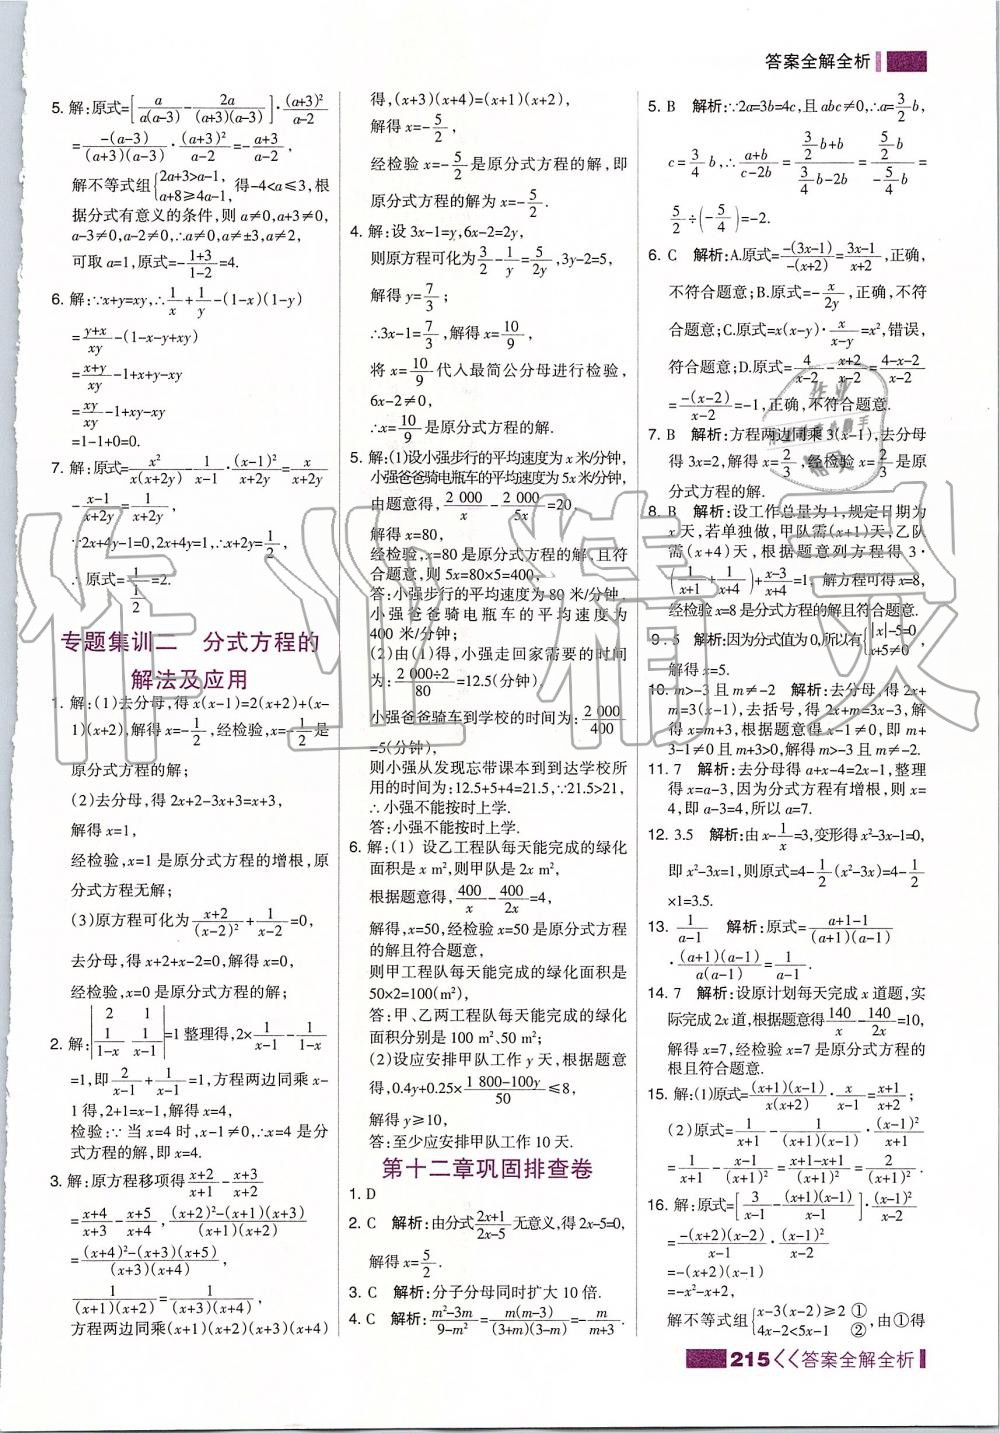 答案全解全析
5. 解:原式=[a/a(a-3) - 2a/(a+3)(a-3)]·(a+3)²/a-2
=-(a-3)/(a+3)(a-3)·(a+3)²/a-2=-a+3/a-2,
解不等式组{2a+3>a-1, a+8≥4a-1, 得-4<a≤3,根
据分式有意义的条件,则 a≠0,a+3≠0,
a-3≠0,a-2≠0,∴a≠0,a≠±3,a≠2,
可取 a=1,原式=-1+3/1-2=4.
6. 解:∵x+y=xy,∴1/x+1/y-(1-x)(1-y)
=y+x/xy-(1-x-y+xy)
=x+y/xy-1+x+y-xy
=xy/xy-1+xy-xy
=1-1+0=0.
7. 解:原式=x²/x(x+2y)-1/x-1·(x-1)²/x+2y=x/x+2y
-x-1/x+2y=1/x+2y,
∵2x+4y-1=0,2x+4y=1,∴x+2y=1/2,
∴原式=1/(1/2)=2.
专题集训二 分式方程的
解法及应用
1. 解:(1)去分母,得 x(x-1)=2(x+2)+(x-
1)(x+2),解得 x=-1/2,经检验,x=-1/2是
原分式方程的解;
(2)去分母,得 2x+2-3x+3=x+3,
解得 x=1,
经检验,x=1 是原分式方程的增根,原
分式方程无解;
(3)原方程可化为x+2/(x-2)²+1/x-2=0,
去分母,得 x+2+x-2=0,解得 x=0,
经检验,x=0 是原分式方程的解;
2. 解:|2 1; 1/1-x 1/x-1|=1整理得,2×1/x-1-1/1-x
=1,即2/x-1+1/x-1=1,方程两边同乘 x-
1 得,2+1=x-1,解得 x=4,
检验:∵ 当 x=4 时,x-1≠0,∴x=4 是分
式方程的解,即 x=4.
3. 解:原方程移项得x+2/x+1-x+3/x+2
=x+4/x+3-x+5/x+4,(x+2)²-(x+1)(x+3)/(x+1)(x+2)
=(x+4)²-(x+3)(x+5)/(x+3)(x+4),
1/(x+1)(x+2)=1/(x+3)(x+4),
方程两边同乘(x+1)(x+2)(x+3)(x+4)
得,(x+3)(x+4)=(x+1)(x+2),
解得 x=-5/2,
经检验 x=-5/2是原分式方程的解,即
原分式方程的解为 x=-5/2.
4. 解:设 3x-1=y,6x-2=2y,
则原方程可化为3/2-1/y=5/2y,3y-2=5,
解得 y=7/3;
∴3x-1=7/3,解得 x=10/9,
将 x=10/9代入最简公分母进行检验,
6x-2≠0,
∴x=10/9是原分式方程的解.
5. 解:(1)设小强步行的平均速度为 x 米/分钟,
小强爸爸骑电瓶车的平均速度为 5x 米/分钟,
由题意得,2 000/x-2 000/5x=20,
解得 x=80,
经检验,x=80 是原分式方程的解,且符
合题意,则 5x=80×5=400,
答:小强步行的平均速度为 80 米/分钟,
小强爸爸骑电瓶车的平均速度为
400 米/分钟;
(2)由(1)得,小强走回家需要的时间
为:2 000÷2/80=12.5(分钟),
小强爸爸骑车到学校的时间为:2 000/400
=5(分钟),
则小强从发现忘带课本到到达学校所
用的时间为:12.5+5+4=21.5,∵21.5>21,
∴小强不能按时上学.
答:小强不能按时上学.
6. 解:(1) 设乙工程队每天能完成的绿化
面积是 x m²,则甲队是 2x m²,
根据题意得,400/x-400/2x=4,
解得,x=50,经检验 x=50 是原分式方程
的解且符合题意,
则甲工程队每天能完成的绿化面积是
50×2=100(m²),
答:甲、乙两工程队每天能完成的绿化
面积分别是 100 m²、50 m²;
(2)设应安排甲队工作 y 天,根据题意
得,0.4y+0.25×1 800-100y/50≤8,
解得 y≥10,
答:至少应安排甲队工作 10 天.
第十二章巩固排查卷
1. D
2. C 解析:由分式2x+1/2x-5无意义,得 2x-5=0,
解得 x=5/2.
3. C 解析:分子分母同时扩大 10 倍.
4. C 解析:m²-3m/9-m²=m(m-3)/(3+m)(3-m)=-m/m+3.
5. B 解析:∵2a=3b=4c,且 abc≠0,∴a=3/2b,
c=3/4b,∴a+b/c-2b=(3/2b+b)/(3/4b-2b)=(5/2b)/(-5/4b)=
5/2÷(-5/4)=-2.
6. C 解析:A.原式=-(3x-1)/-(x+2)=3x-1/x+2,正确,
不符合题意;B.原式=-x/2y,正确,不符
合题意;C.原式=x(x-y)·x/x-y=x²,错误,
符合题意;D.原式=4/x-2-x+2/x-2=4-x-2/x-2
=-(x-2)/x-2=-1,正确,不符合题意.
7. B 解析:方程两边同乘 3(x-1),去分母
得 3x=2,解得 x=2/3,经检验 x=2/3是原
分式方程的解.
8. B 解析:设工作总量为 1,规定日期为
x 天,若单独做,甲队需(x+1)天,乙队
需(x+4)天,根据题意列方程得 3·
(1/x+1+1/x+4)+x-3/x+4=1, 解方程可得 x=8,
经检验 x=8 是分式方程的解且符合题意.
9. 5 解析:因为分式值为 0,所以有{|x|-5=0, x+5≠0,
解得 x=5.
10. m>-3 且 m≠-2 解析:去分母,得 2x+
m=3(x-1),去括号,得 2x+m=3x-3,解
得 x=m+3,根据题意得 x-1≠0,即 m+
3-1≠0 且 m+3>0,解得 m>-3 且 m≠-2.
11. 7 解析:去分母得 a+x-4=2x-1,整理
得 x=a-3,因为分式方程有增根,则 x=
4,即 a-3=4,所以 a=7.
12. 3.5 解析:由 x-1/x=3,变形得 x²-3x-1=0,
即 x²-3x=1,则原式=4-1/2(x²-3x)=4-1/2
×1=3.5.
13. 1/a-1 解析:原式=a+1-1/(a+1)(a-1)
·(a+1)(a-1)/a(a-1)=1/a-1.
14. 7 解析:设原计划每天完成 x 道题,实
际完成 2x 道,根据题意得140/x-140/2x=10,
解得 x=7,经检验 x=7 是原分式方程的
根且符合题意.
15. 解:(1)原式=(x+1)(x-1)/x(x+2)·x/x-1=x+1/x+2;
(2)原式=1/x+1-x-1/(x+1)(x-1)·(x-1)²/x+1
=1/x+1-x-1/(x+1)²=x+1-x+1/(x+1)²=2/(x+1)².
16. 解:原式=[3/x-1-(x+1)(x-1)/x-1]·(x-1)²/x-2
=-(x+2)(x-2)/x-1·(x-1)²/x-2
=-(x+2)(x-1)
=-x²-x+2,
解不等式组{x-3(x-2)≥2 ① 4x-2<5x-1 ②,由①得
215<<答案全解全析
作业精灵